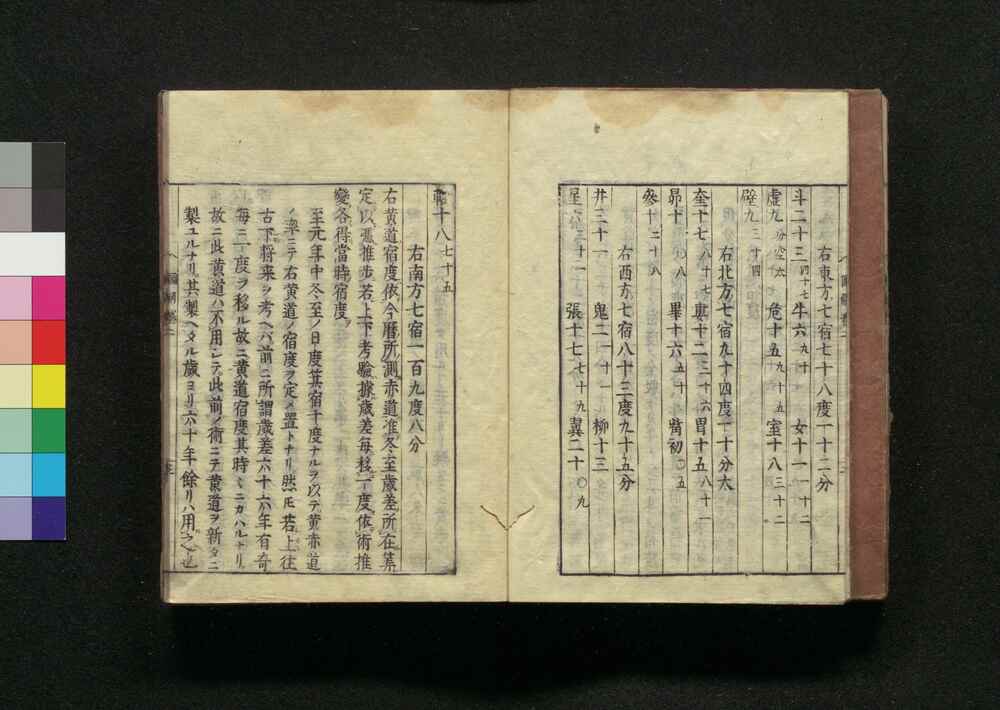 右東方七宿七十八度一十二分
斗二十三四十七 牛六九十 女十一一十二
虛九分空太 危十五九十五 室十八三十二
壁九三十四
右北方七宿九十四度一十分太
奎十七八十七 婁十二三十六 胃十五八十一
昴十〇八 畢十六五十 觜初〇五
參十二十八
右西方七宿八十三度九十五分
井三十一〇三 鬼二一十一 柳十三
星六三十一 張十七七十九 翼二十〇九
軫十八七十五
右南方七宿一百九度八分
右黃道宿度依今曆所測赤道准冬至歲差所在筭
定以憑推步若上下考驗據歲差每移一度依術推
變各得當時宿度
至元年中冬至ノ日度箕宿十度ナルヲ以テ黃赤道
ノ率ニテ右黃道ノ宿度ヲ定メ置トナリ然𪜈若上往
古下将来ヲ考ヘバ前ニ所謂歲差六十六年有奇
每ニ一度ヲ移ル故ニ黃道宿度其時〻ニカハルナリ
故ニ此黃道ハ不用シテ此前ノ術ニテ黃道ヲ新タニ
製ユルナリ其製ヘタル歲ヨリ六十年餘リハ用之也